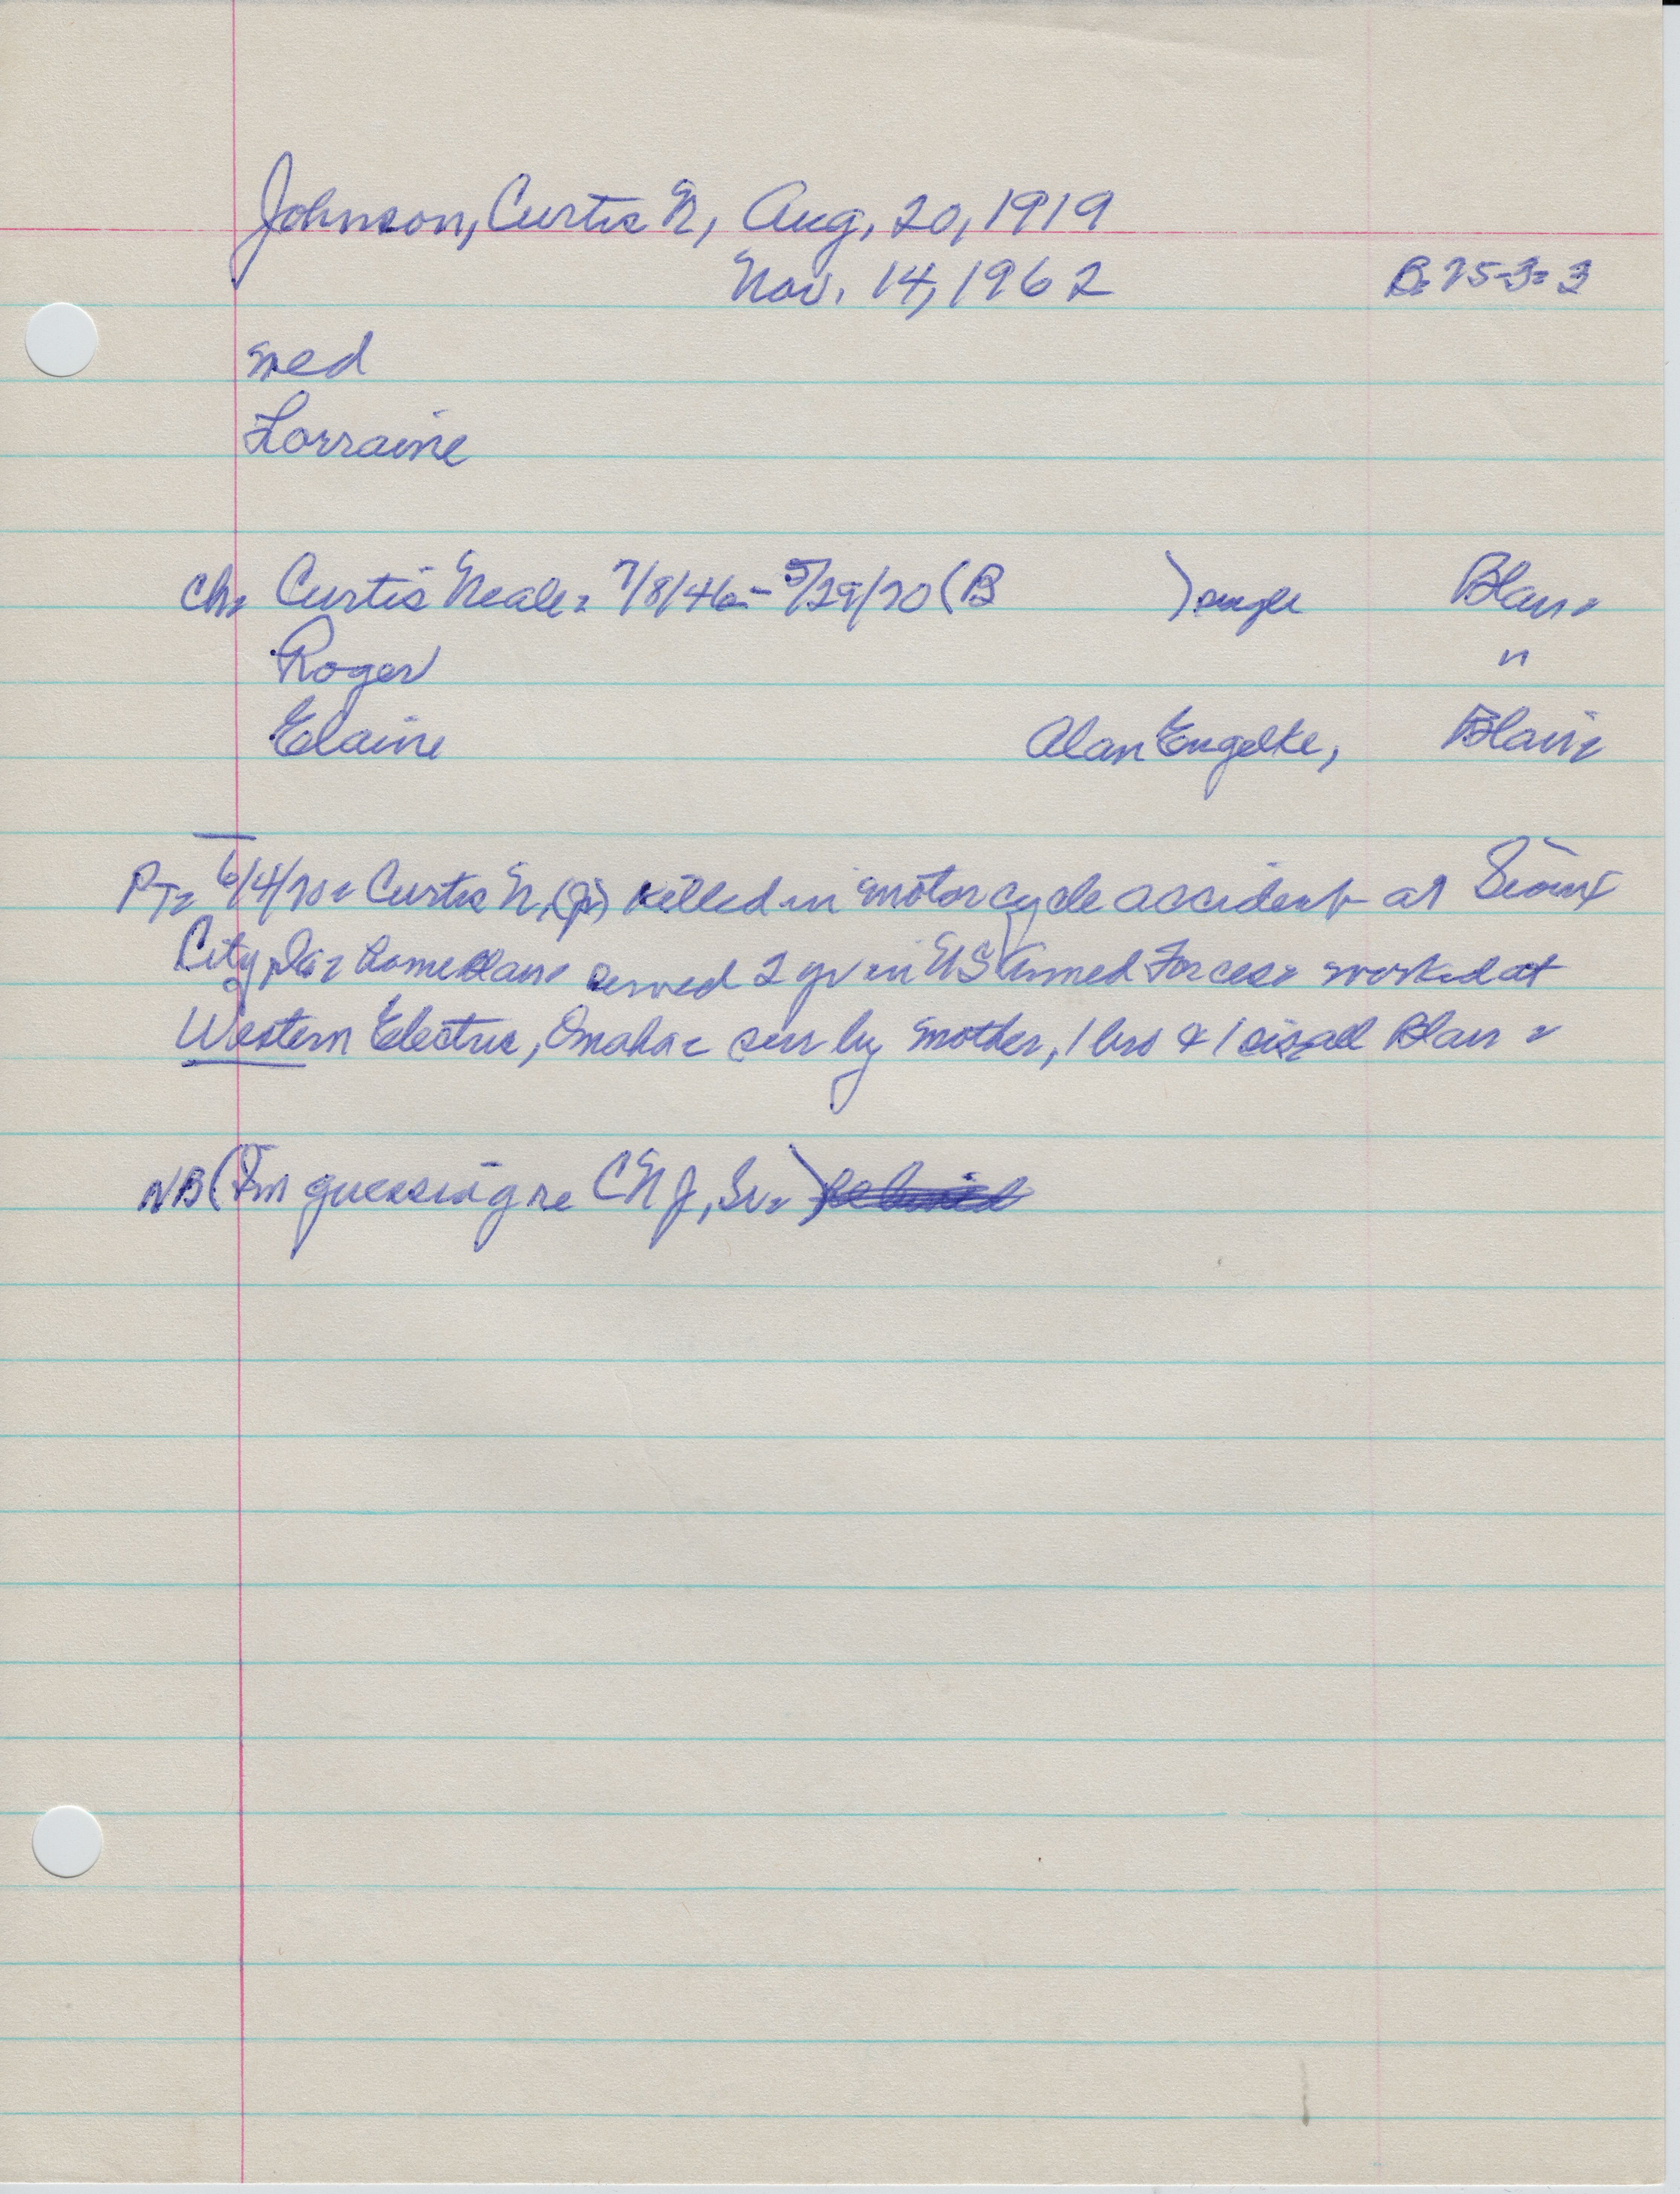 Johnson, Curtis N, Aug, 20, 1919
Nov. 14, 1962 B-25-3-3
med
Lorraine
ch- Curtis Neale- 7/8/46-5/29/70 (B ) single Blair-
Roger "
Elaine Alan Engelke, Blair-
PT- 6/4/70- Curtis N, (Jr) killed in motorcycle accident at Sioux
City, Ia- home Blair- served 2 yr in US Armed Forces- worked at
Western Electric, Omaha- surv by mother, 1 bro & 1 sis, all Blair-
NB (I'm guessing re CNJ, Sr-)